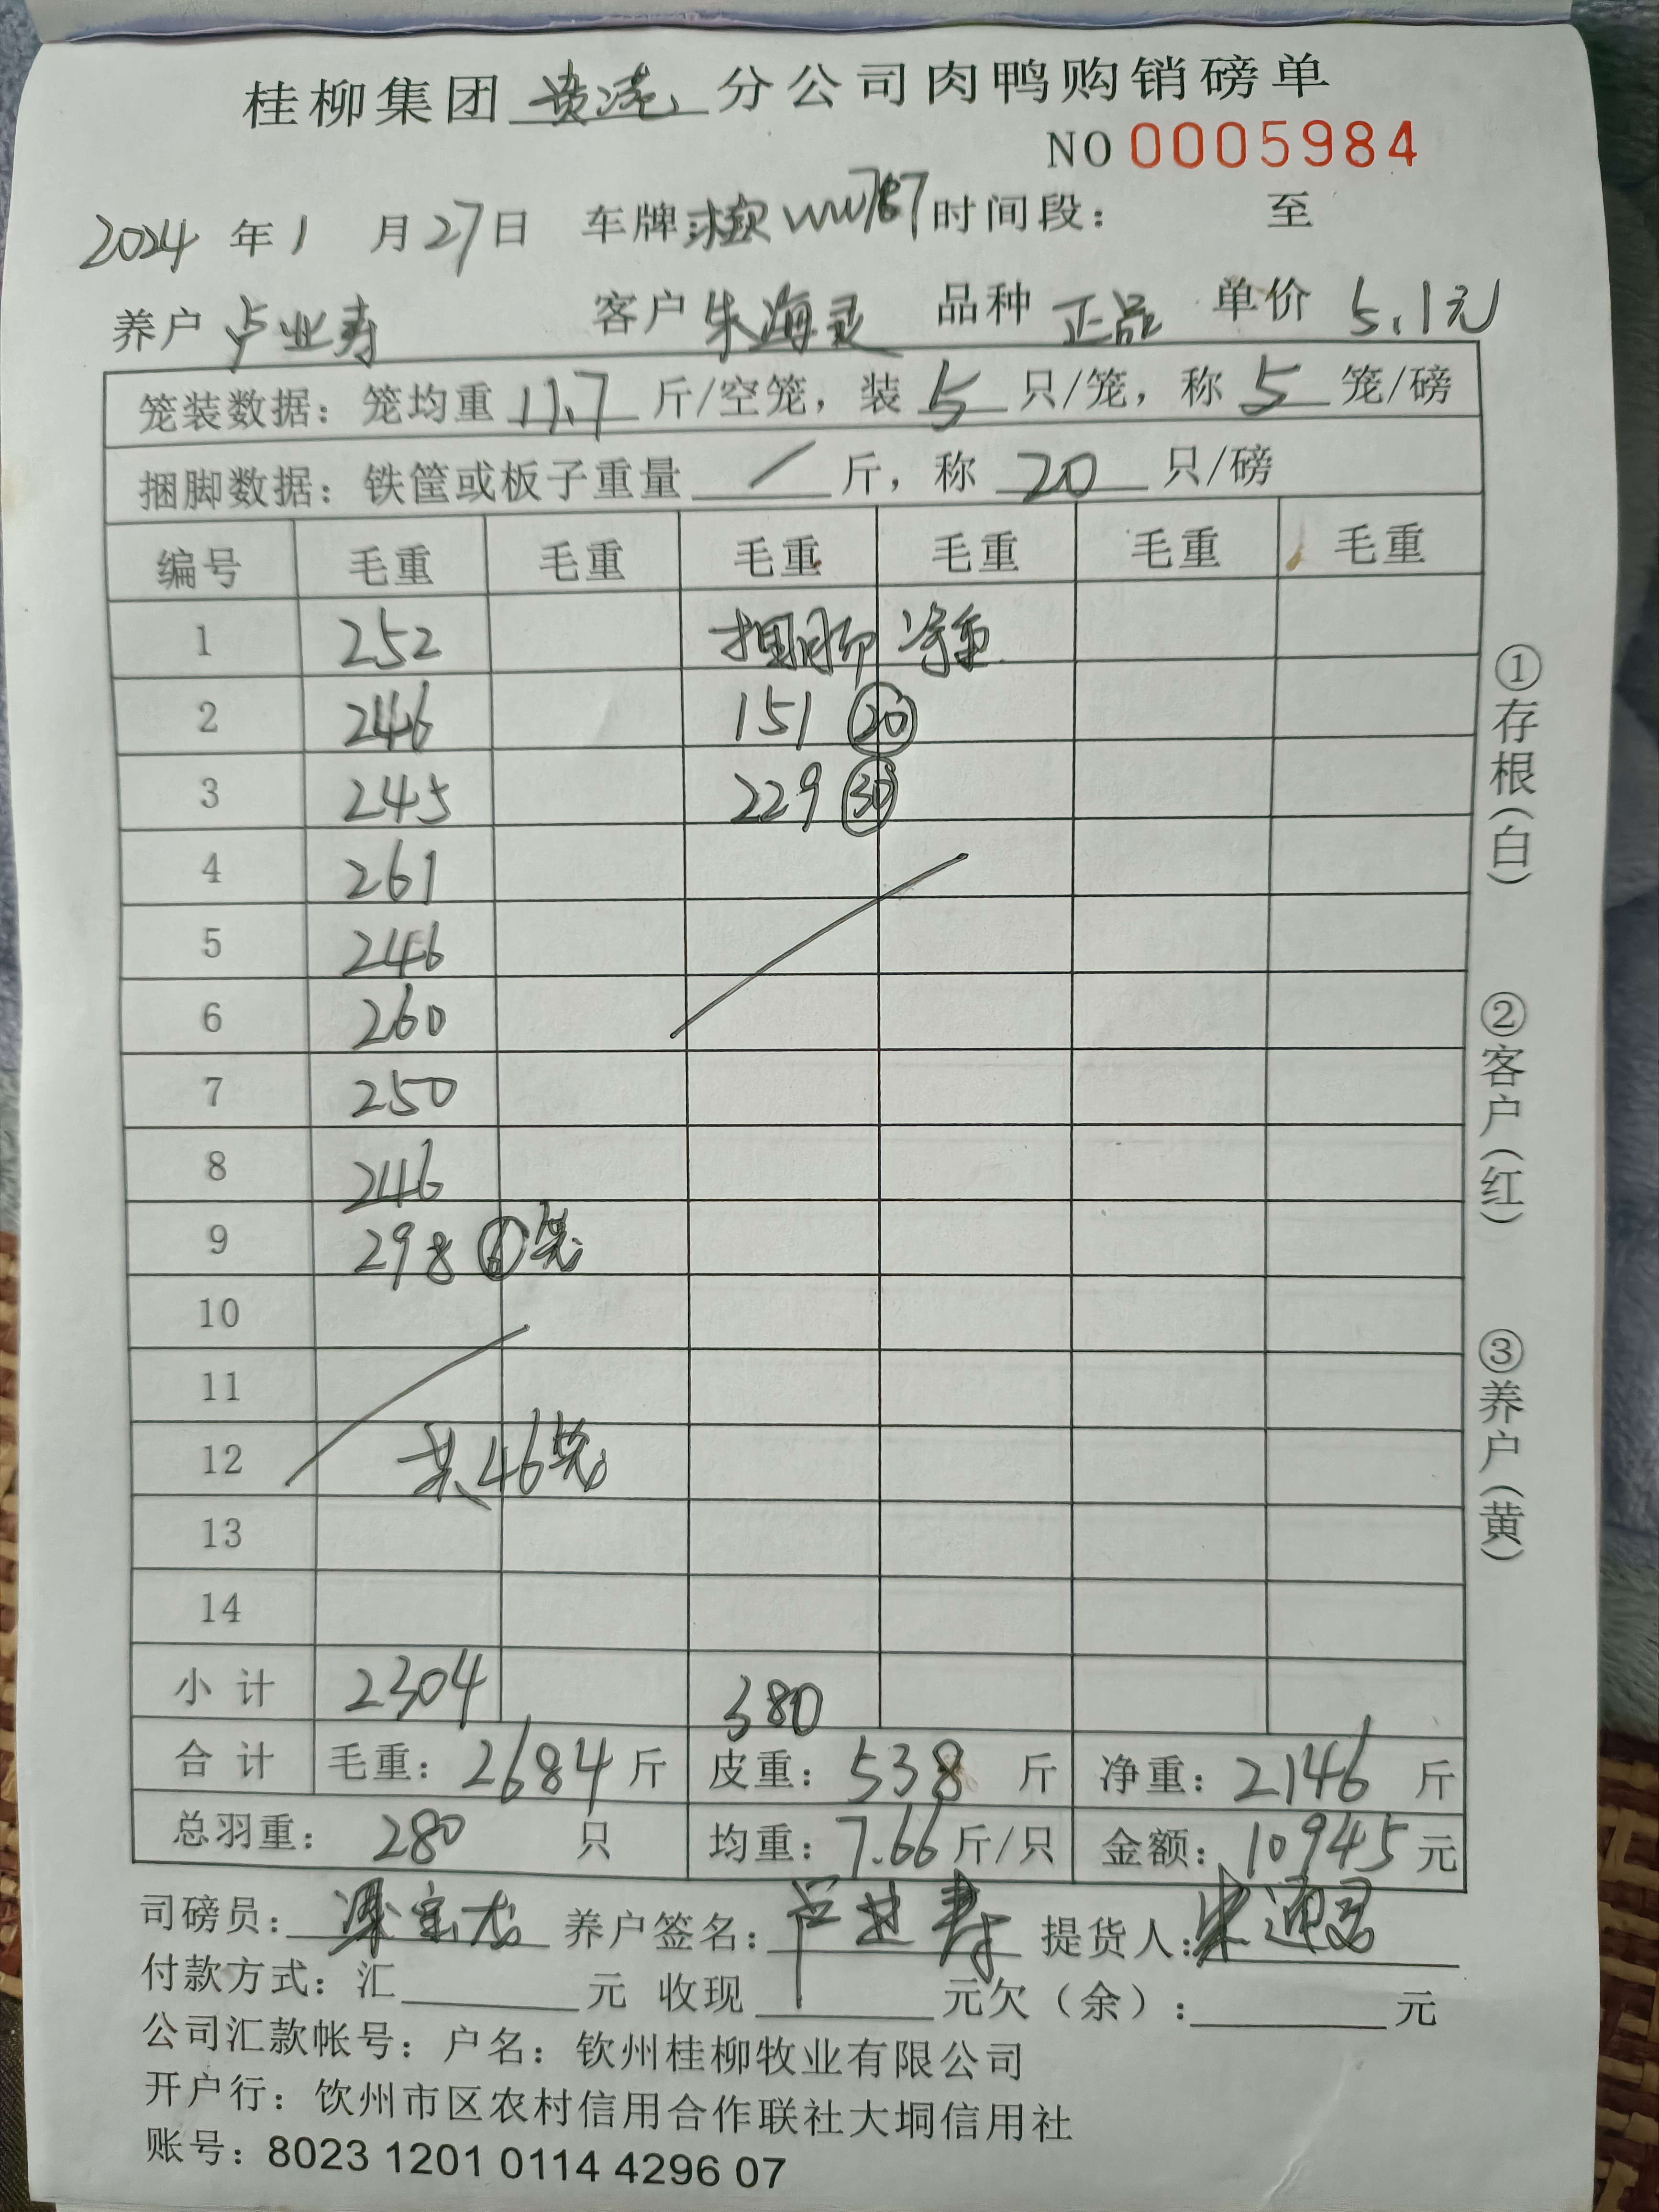 桂柳集团 贵港 分公司肉鸭购销磅单
NO 0005984
2024 年 1 月 27 日 车牌 WW787 时间段： 至
养户 卢业寿 客户 朱海灵 品种 正品 单价 5.1元
笼装数据：笼均重 11.7 斤/空笼，装 5 只/笼，称 5 笼/磅
捆脚数据：铁筐或板子重量 / 斤，称 20 只/磅
编号 毛重 毛重 毛重 毛重 毛重 毛重
1 252 捆脚 净重
2 246 151 20
3 245 229 30
4 261
5 246
6 260
7 250
8 246
9 298 6 笼
10
11
12 共46笼
13
14
小 计 2304 380
合 计 毛重：2684 斤 皮重：538 斤 净重：2146 斤
总羽重： 280 只 均重：7.66 斤/只 金额：10945 元
司磅员： 养户签名：卢业寿 提货人：朱
付款方式：汇 元 收现 元欠（余）： 元
公司汇款帐号：户名：钦州桂柳牧业有限公司
开户行：钦州市区农村信用合作联社大垌信用社
账号：8023 1201 0114 4296 07
①存根（白）
②客户（红）
③养户（黄）